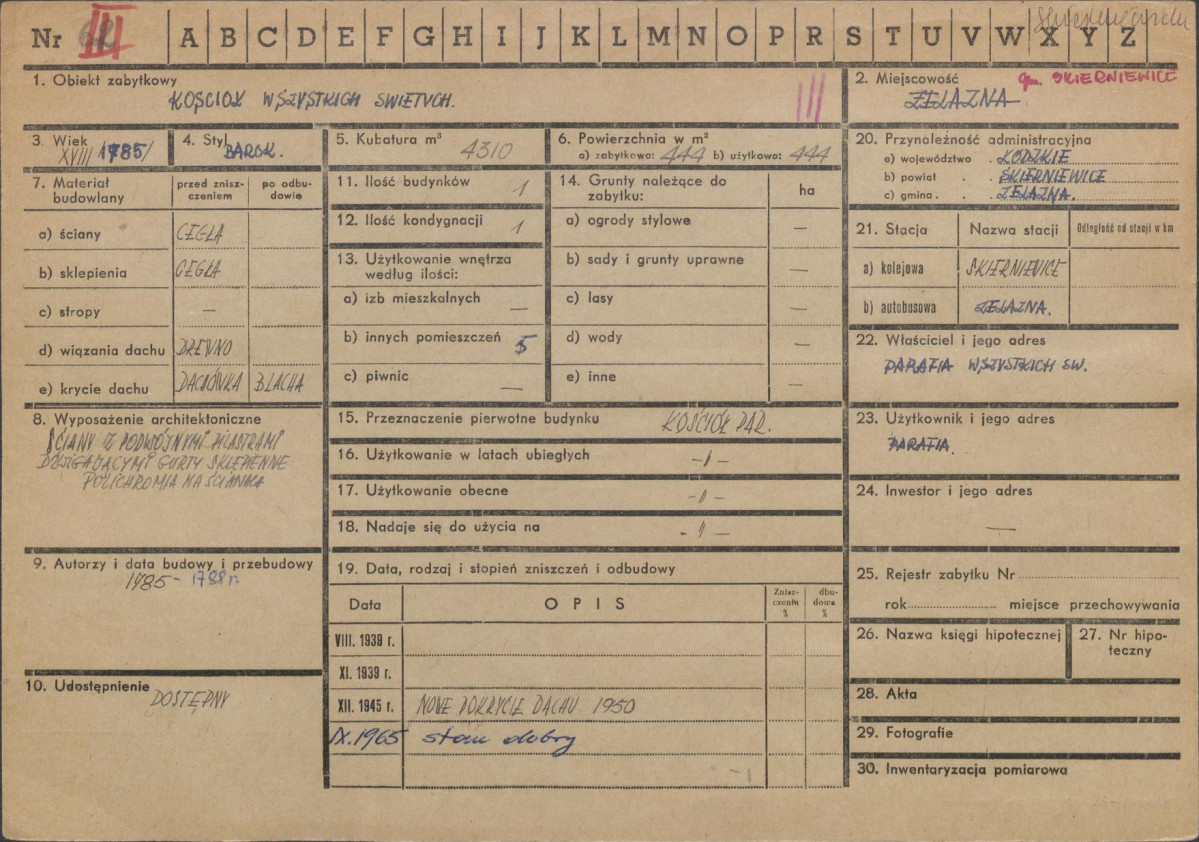 Nr III A B C D E F G H I J K L M N O P R S T U V W X Y Z
1. Obiekt zabytkowy
KOŚCIOŁ WSZYSTKICH SWIETYCH.
III
2. Miejscowość gm. SKIERNIEWICE
ŻELAZNA
3. Wiek
XVIII /1785/
4. Styl
BAROK.
5. Kubatura m³
4310
6. Powierzchnia w m²
a) zabytkowa: 444 b) użytkowa: 444
20. Przynależność administracyjna
a) województwo . ŁÓDZKIE
b) powiat . . SKIERNIEWICE
c) gmina . . . ŻELAZNA.
7. Materiał budowlany
przed znisz-
czeniem
po odbu-
dowie
a) ściany CEGŁA
b) sklepienia CEGŁA
c) stropy —
d) wiązania dachu DREWNO
e) krycie dachu DACHÓWKA BLACHA
11. Ilość budynków 1
12. Ilość kondygnacji 1
13. Użytkowanie wnętrza
według ilości:
a) izb mieszkalnych —
b) innych pomieszczeń 5
c) piwnic —
14. Grunty należące do
zabytku:
ha
a) ogrody stylowe —
b) sady i grunty uprawne —
c) lasy —
d) wody —
e) inne —
21. Stacja Nazwa stacji Odległość od stacji w km
a) kolejowa SKIERNIEWICE
b) autobusowa ŻELAZNA.
22. Właściciel i jego adres
PARAFIA WSZYSTKICH SW.
8. Wyposażenie architektoniczne
ŚCIANY Z PODWÓJNYMI PILASTRAMI
DŹWIGAJĄCYMI GURTY SKLEPIENNE
POLICHROMIA NA ŚCIANKA
15. Przeznaczenie pierwotne budynku KOŚCIÓŁ PAR.
16. Użytkowanie w latach ubiegłych -"-
17. Użytkowanie obecne -"-
18. Nadaje się do użycia na -"-
23. Użytkownik i jego adres
PARAFIA.
24. Inwestor i jego adres
—
9. Autorzy i data budowy i przebudowy
1785 - 1788 r.
10. Udostępnienie
DOSTĘPNY
19. Data, rodzaj i stopień zniszczeń i odbudowy
Data OPIS
Znisz-
czenia
%
dbu-
dowa
%
VIII. 1939 r.
XI. 1939 r.
XII. 1945 r. NOWE POKRYCIE DACHU 1950
IX.1965 stan dobry
25. Rejestr zabytku Nr
rok miejsce przechowywania
26. Nazwa księgi hipotecznej
27. Nr hipo-
teczny
28. Akta
29. Fotografie
30. Inwentaryzacja pomiarowa